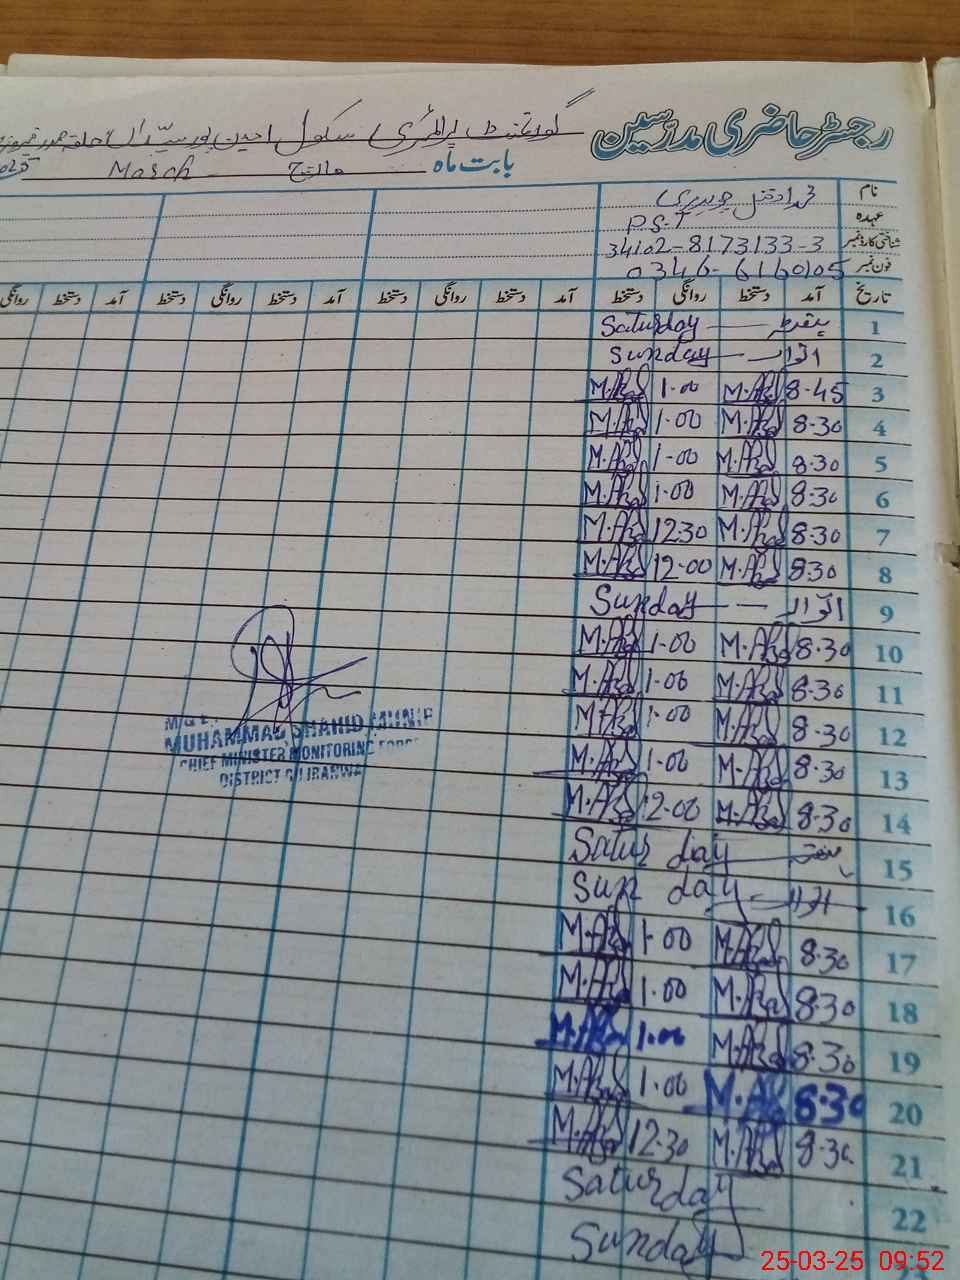 رجسٹر حاضری مدرسین
گورنمنٹ پرائمری سکول
بابت ماہ مارچ March
نام
عہدہ P.S.T
شناختی کارڈ نمبر 34102-8173133-3
فون نمبر 0346-6160105
تاریخ آمد دستخط روانگی دستخط آمد دستخط روانگی دستخط آمد دستخط روانگی دستخط آمد دستخط روانگی
1 Saturday
2 اتوار Sunday
3 8.45 M.Afzal 1.00 M.Afzal
4 8.30 M.Afzal 1.00 M.Afzal
5 8.30 M.Afzal 1.00 M.Afzal
6 8.30 M.Afzal 1.00 M.Afzal
7 8.30 M.Afzal 12.30 M.Afzal
8 8.30 M.Afzal 12.00 M.Afzal
9 اتوار Sunday
10 8.30 M.Afzal 1.00 M.Afzal
11 8.30 M.Afzal 1.00 M.Afzal
12 8.30 M.Afzal 1.00 M.Afzal
13 8.30 M.Afzal 1.00 M.Afzal
14 8.30 M.Afzal 12.00 M.Afzal
15 Saturday
16 اتوار Sunday
17 8.30 M.Afzal 1.00 M.Afzal
18 8.30 M.Afzal 1.00 M.Afzal
19 8.30 M.Afzal 1.00 M.Afzal
20 8.30 M.Afzal 1.00 M.Afzal
21 8.30 M.Afzal 12.30 M.Afzal
22 Saturday
Sunday
MUHAMMAD SHAHID MUNIR
CHIEF MINISTER MONITORING FORCE
DISTRICT GUJRANWALA
25-03-25 09:52